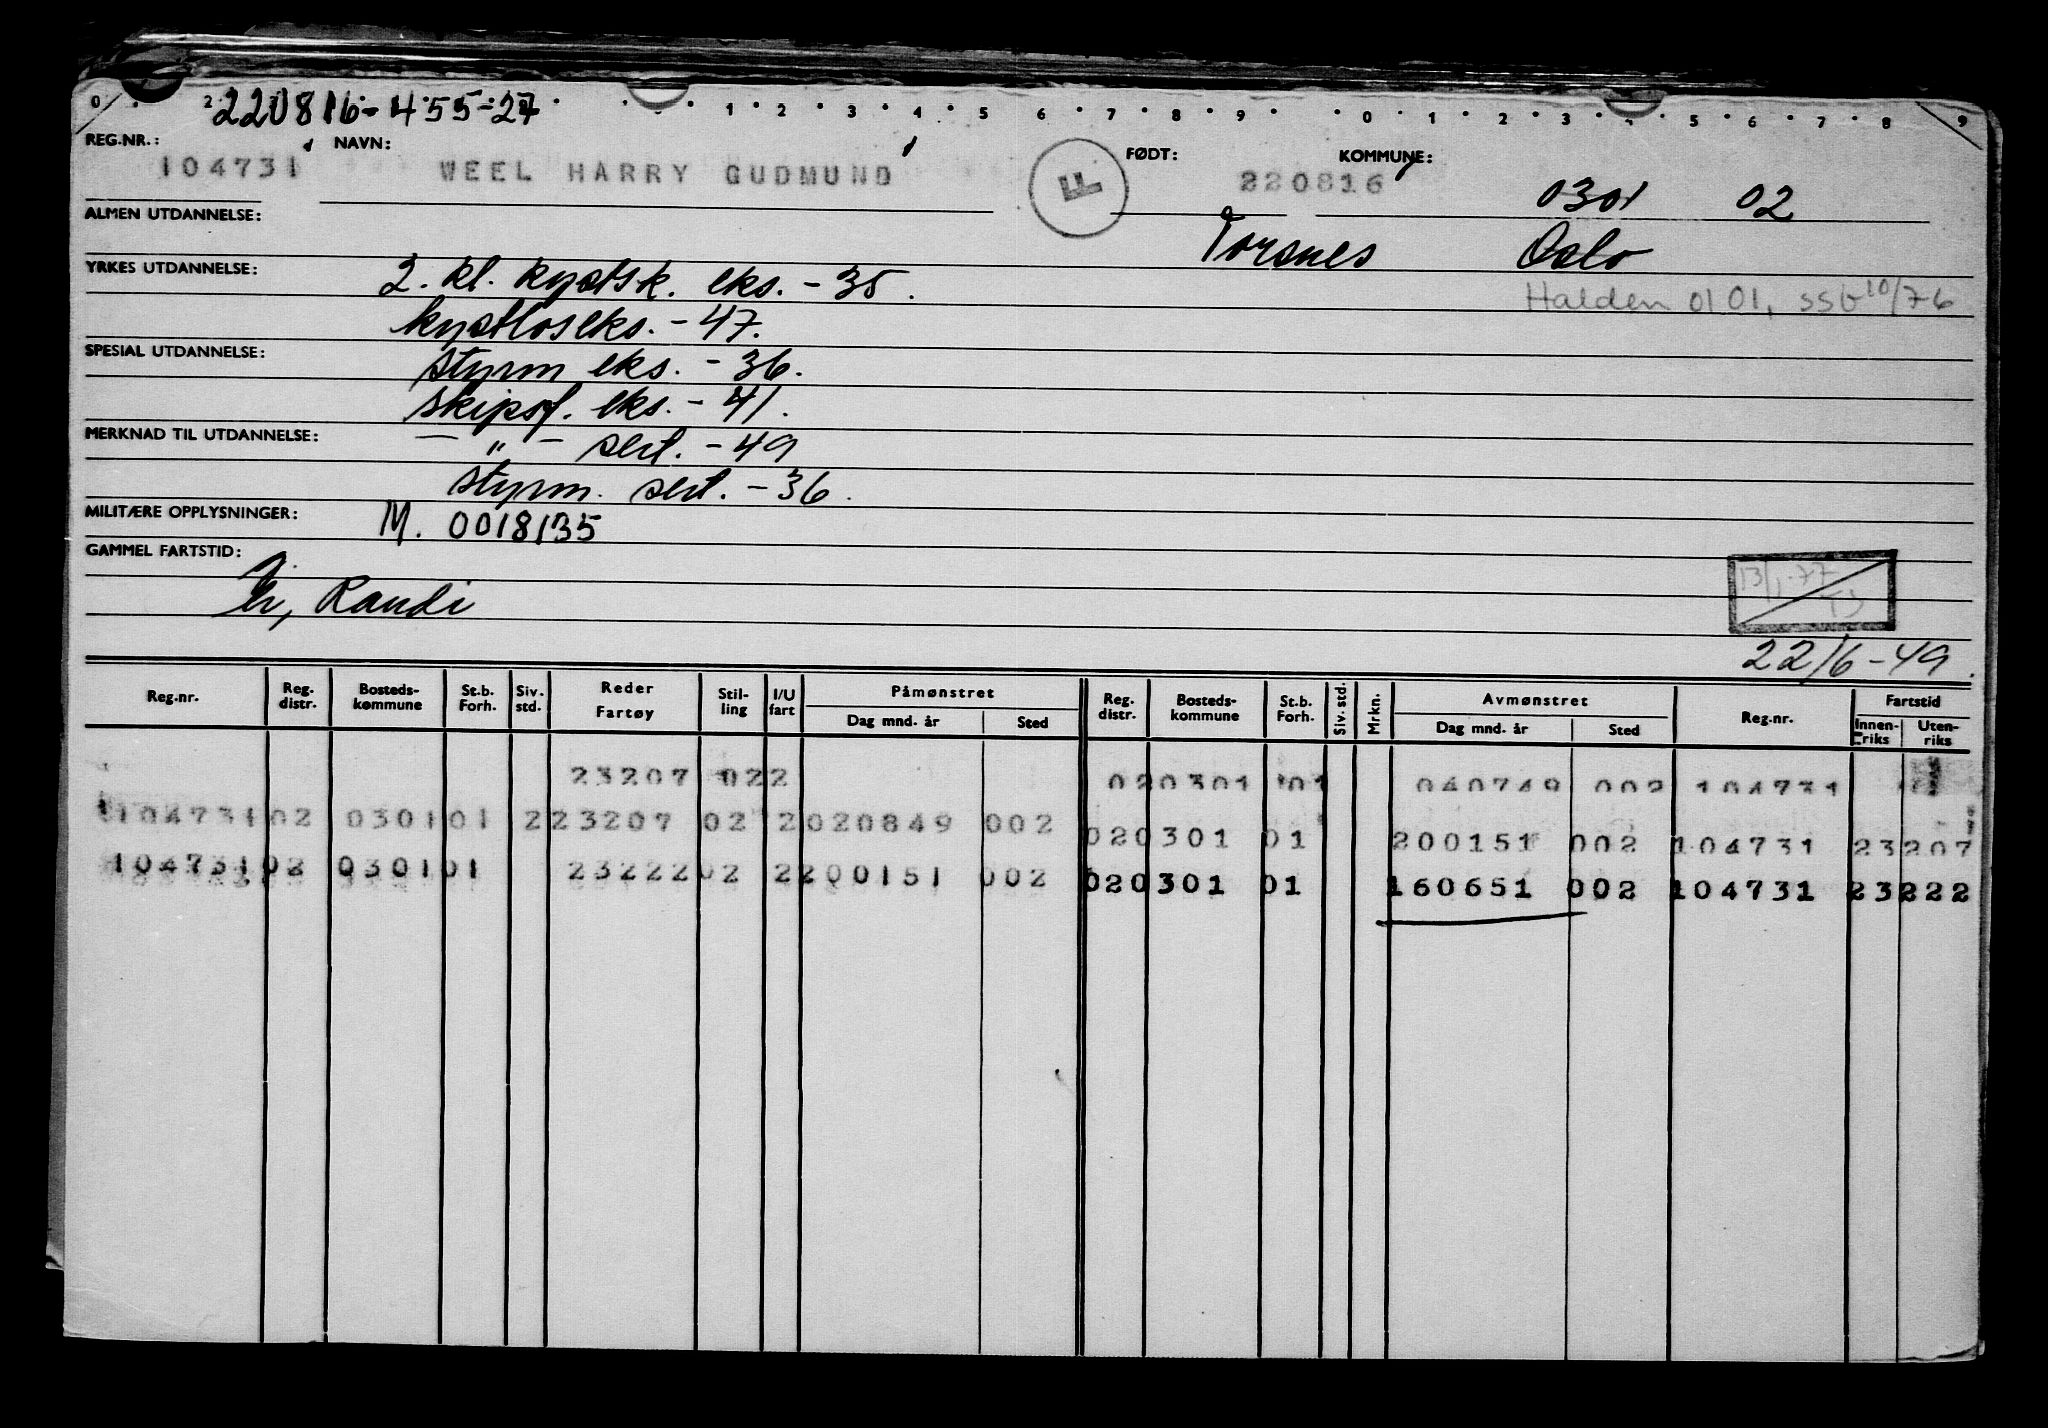 220816-455-27
REG.NR.: NAVN: FØDT: KOMMUNE:
104731 WEEL HARRY GUDMUND F 220816 0301 02
ALMEN UTDANNELSE: Torsnes Oslo
YRKES UTDANNELSE: 2. kl. kystsk. eks. - 35.
Halden 0101, ssb 10/76
kystloseks. - 47.
SPESIAL UTDANNELSE: styrm eks. - 36.
skipsf. eks. - 41.
MERKNAD TIL UTDANNELSE: — " — sert. - 49
styrm. sert. - 36.
MILITÆRE OPPLYSNINGER: M. 0018135
GAMMEL FARTSTID:
13/1-77
Randi
22/6-49.
Reg.nr. Reg. distr. Bosteds-kommune St.b. Forh. Siv. std. Reder Fartøy Stil-ling I/U fart Påmønstret Dag mnd. år Sted Reg. distr. Bosteds-kommune St.b. Forh. Siv. std. Mrkn. Avmønstret Dag mnd. år Sted Reg.nr. Fartstid Innen-riks Uten-riks
23207 022 020301 01 040749 002 104731
104731 02 0301 01 2 23207 02 2 020849 002 020301 01 200151 002 104731 23207
104731 02 0301 01 23222 02 2 200151 002 020301 01 160651 002 104731 23222